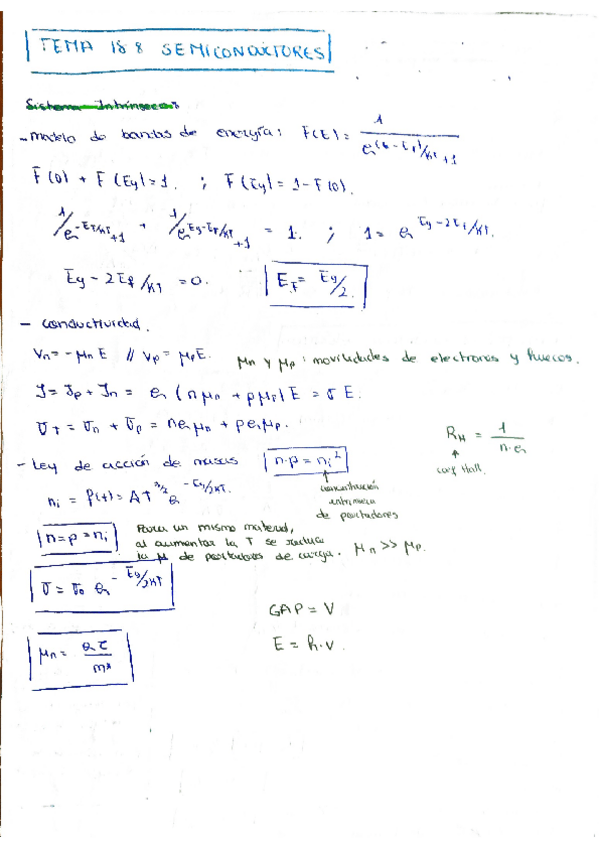 TEMA 18: SEMICONDUCTORES
Sistema Intrínseco:
- Modelo de bandas de energía: F(E) = 1 / e^(E-Ef)/KT + 1
F(0) + F(Eg) = 1. ; F(Eg) = 1 - F(0).
1/e^-Ef/KT +1 + 1/e^Eg-Ef/KT +1 = 1. ; 1 = e^Eg-2Ef/KT.
Eg - 2Ef/KT = 0. Ef = Eg/2.
- Conductividad.
Vn = -μn E // Vp = μp E. μn y μp: movilidades de electrones y huecos.
J = Jp + Jn = e (n μn + p μp) E = σ E.
σT = σn + σp = n e μn + p e μp.
RH = 1 / n·e
coef Hall.
- Ley de acción de masas n·p = ni²
ni = f(t) = A T^3/2 e^-Eg/2KT.
concentración
intrínseca
de portadores
n = p = ni
Para un mismo material,
al aumentar la T se reduce
la μ de portadores de carga. μn >> μp.
σ = σ0 e^-Eg/2KT
GAP = V
E = h·v.
μn = e τ / m*